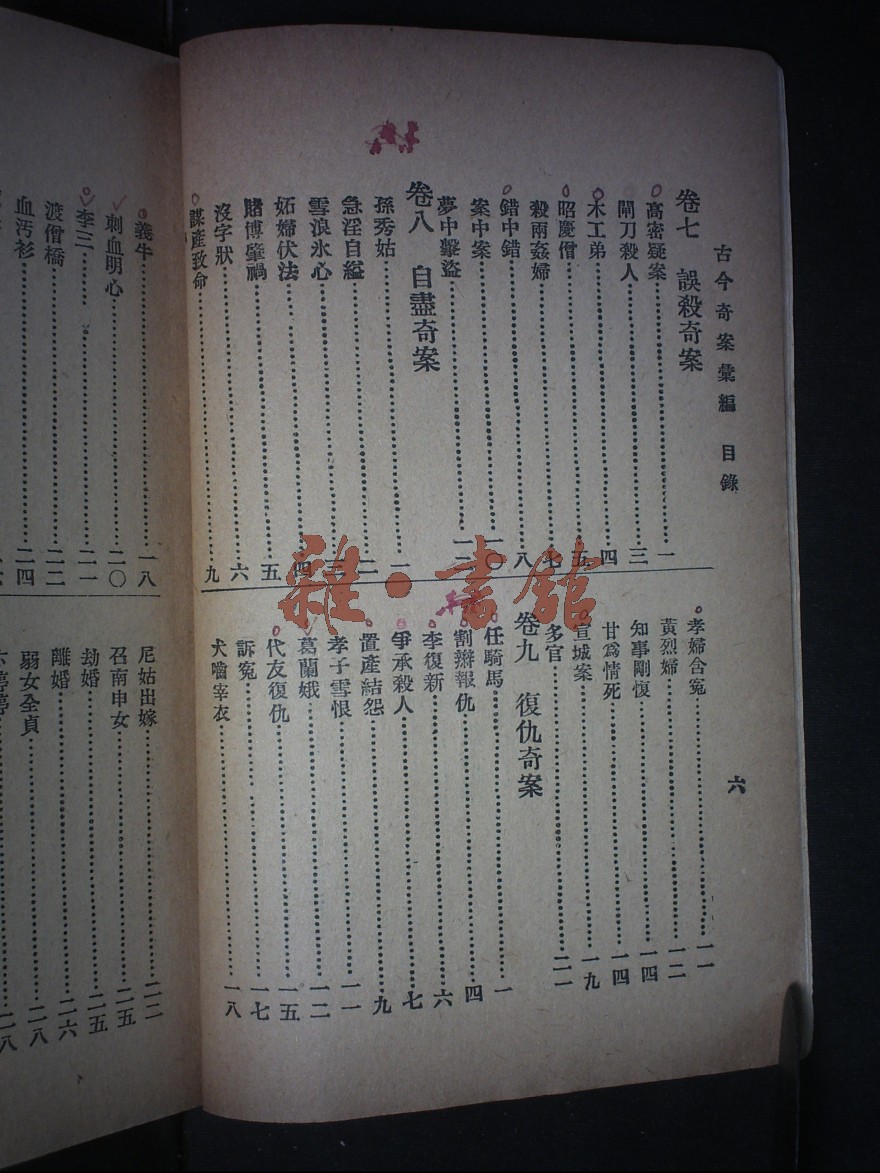 古今奇案彙編 目錄
六
卷七 誤殺奇案
高密疑案……一
閘刀殺人……三
木工弟……四
昭慶僧……五
殺兩姦婦……七
錯中錯……八
案中案……一〇
夢中擊盜……一二
卷八 自盡奇案
孫秀姑……一
急淫自縊……二
雪浪氷心……三
妬婦伏法……四
賭博肇禍……五
沒字狀……六
謀產致命……九
孝婦含冤……一一
黃烈婦……一二
知事剛愎……一四
甘爲情死……一四
宣城案……一九
多官……二一
卷九 復仇奇案
任騎馬……一
割辮報仇……四
李復新……六
爭承殺人……七
置產結怨……九
孝子雪恨……一一
葛蘭娥……一二
代友復仇……一五
訴冤……一七
犬嚙宰衣……一八
義牛……一八
刺血明心……二〇
李三……二一
渡僧橋……二二
血污衫……二四
尼姑出嫁……二二
召南申女……二五
劫婚……二五
離婚……二六
弱女全貞……二八
雜·書館